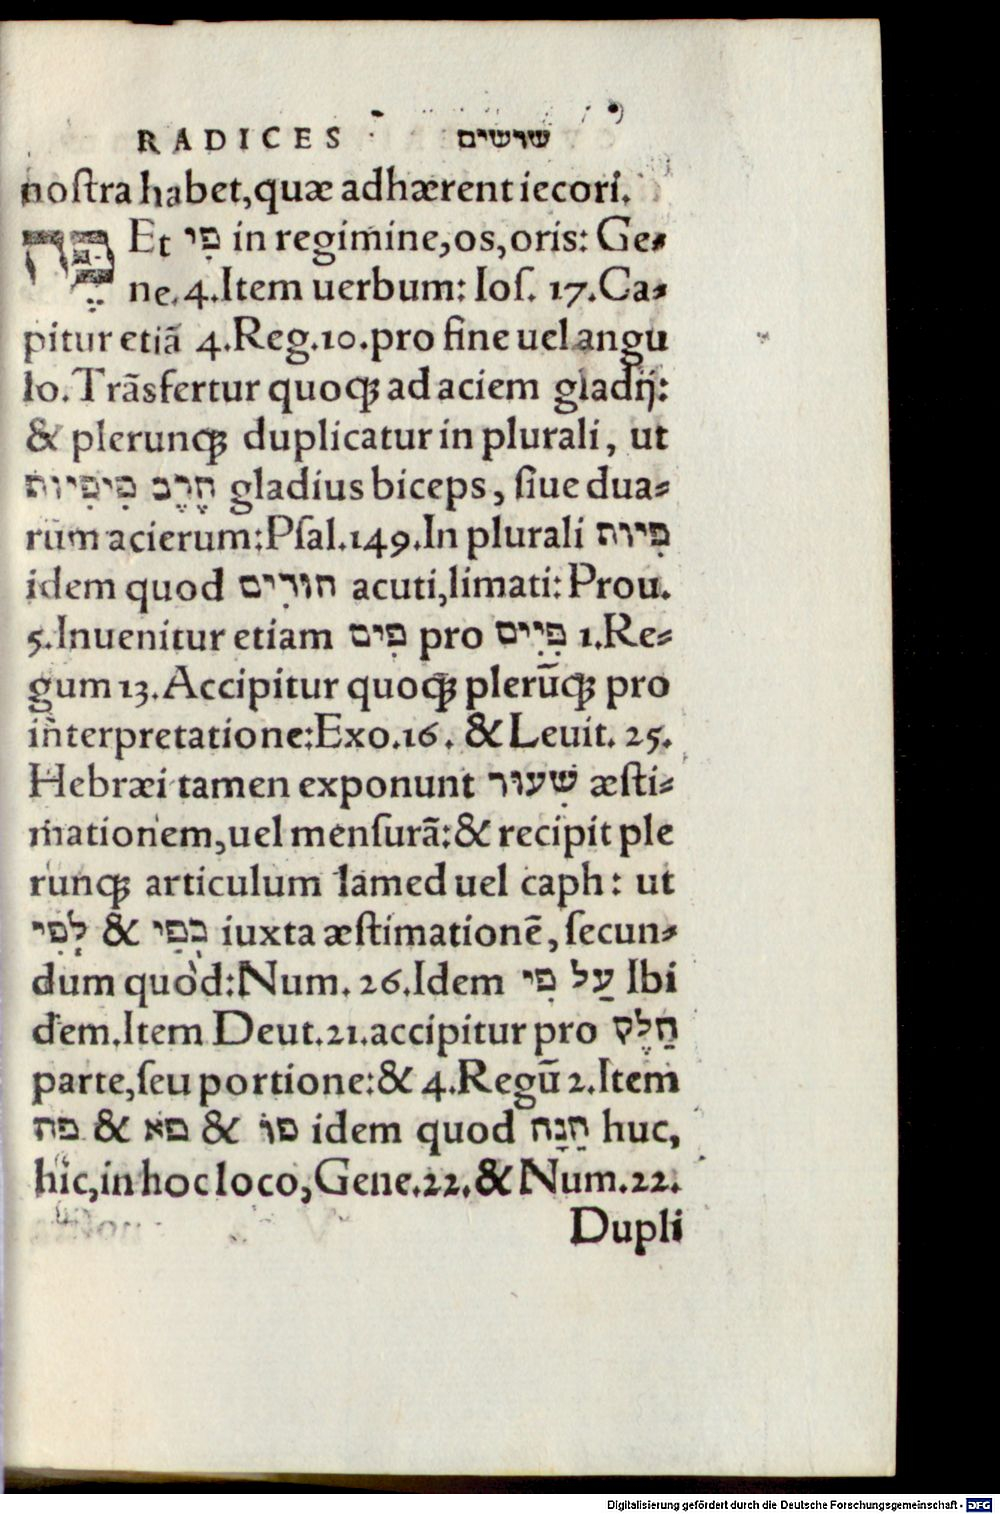 RADICES שרשים
noſtra habet, quæ adhærent iecori.
פֶּה Et פִי in regimine, os, oris: Ge⸗
ne. 4. Item uerbum: Ioſ. 17. Ca⸗
pitur etiā 4. Reg. 10. pro fine uel angu
lo. Trāsfertur quoqꝫ ad aciem gladij:
& plerunqꝫ duplicatur in plurali, ut
חֶרֶב פִיפִיות gladius biceps, ſiue dua⸗
rum acierum: Pſal. 149. In plurali פִיות
idem quod חורִים acuti, limati: Prou.
5. Inuenitur etiam פִים pro פִיִים 1. Re⸗
gum 13. Accipitur quoqꝫ plerūqꝫ pro
interpretatione: Exo. 16. & Leuit. 25.
Hebræi tamen exponunt שִׁעור æſti⸗
mationem, uel menſurā: & recipit ple
runqꝫ articulum lamed uel caph: ut
לְפִי & כְפִי iuxta æſtimationē, ſecun⸗
dum quod: Num. 26. Idem עַל פִי Ibi
dem. Item Deut. 21. accipitur pro חֵלֶק
parte, ſeu portione: & 4. Regū 2. Item
פה & פא & פו idem quod הֵנָה huc,
hic, in hoc loco, Gene. 22. & Num. 22.
Dupli
Digitalisierung gefördert durch die Deutsche Forschungsgemeinschaft - DFG